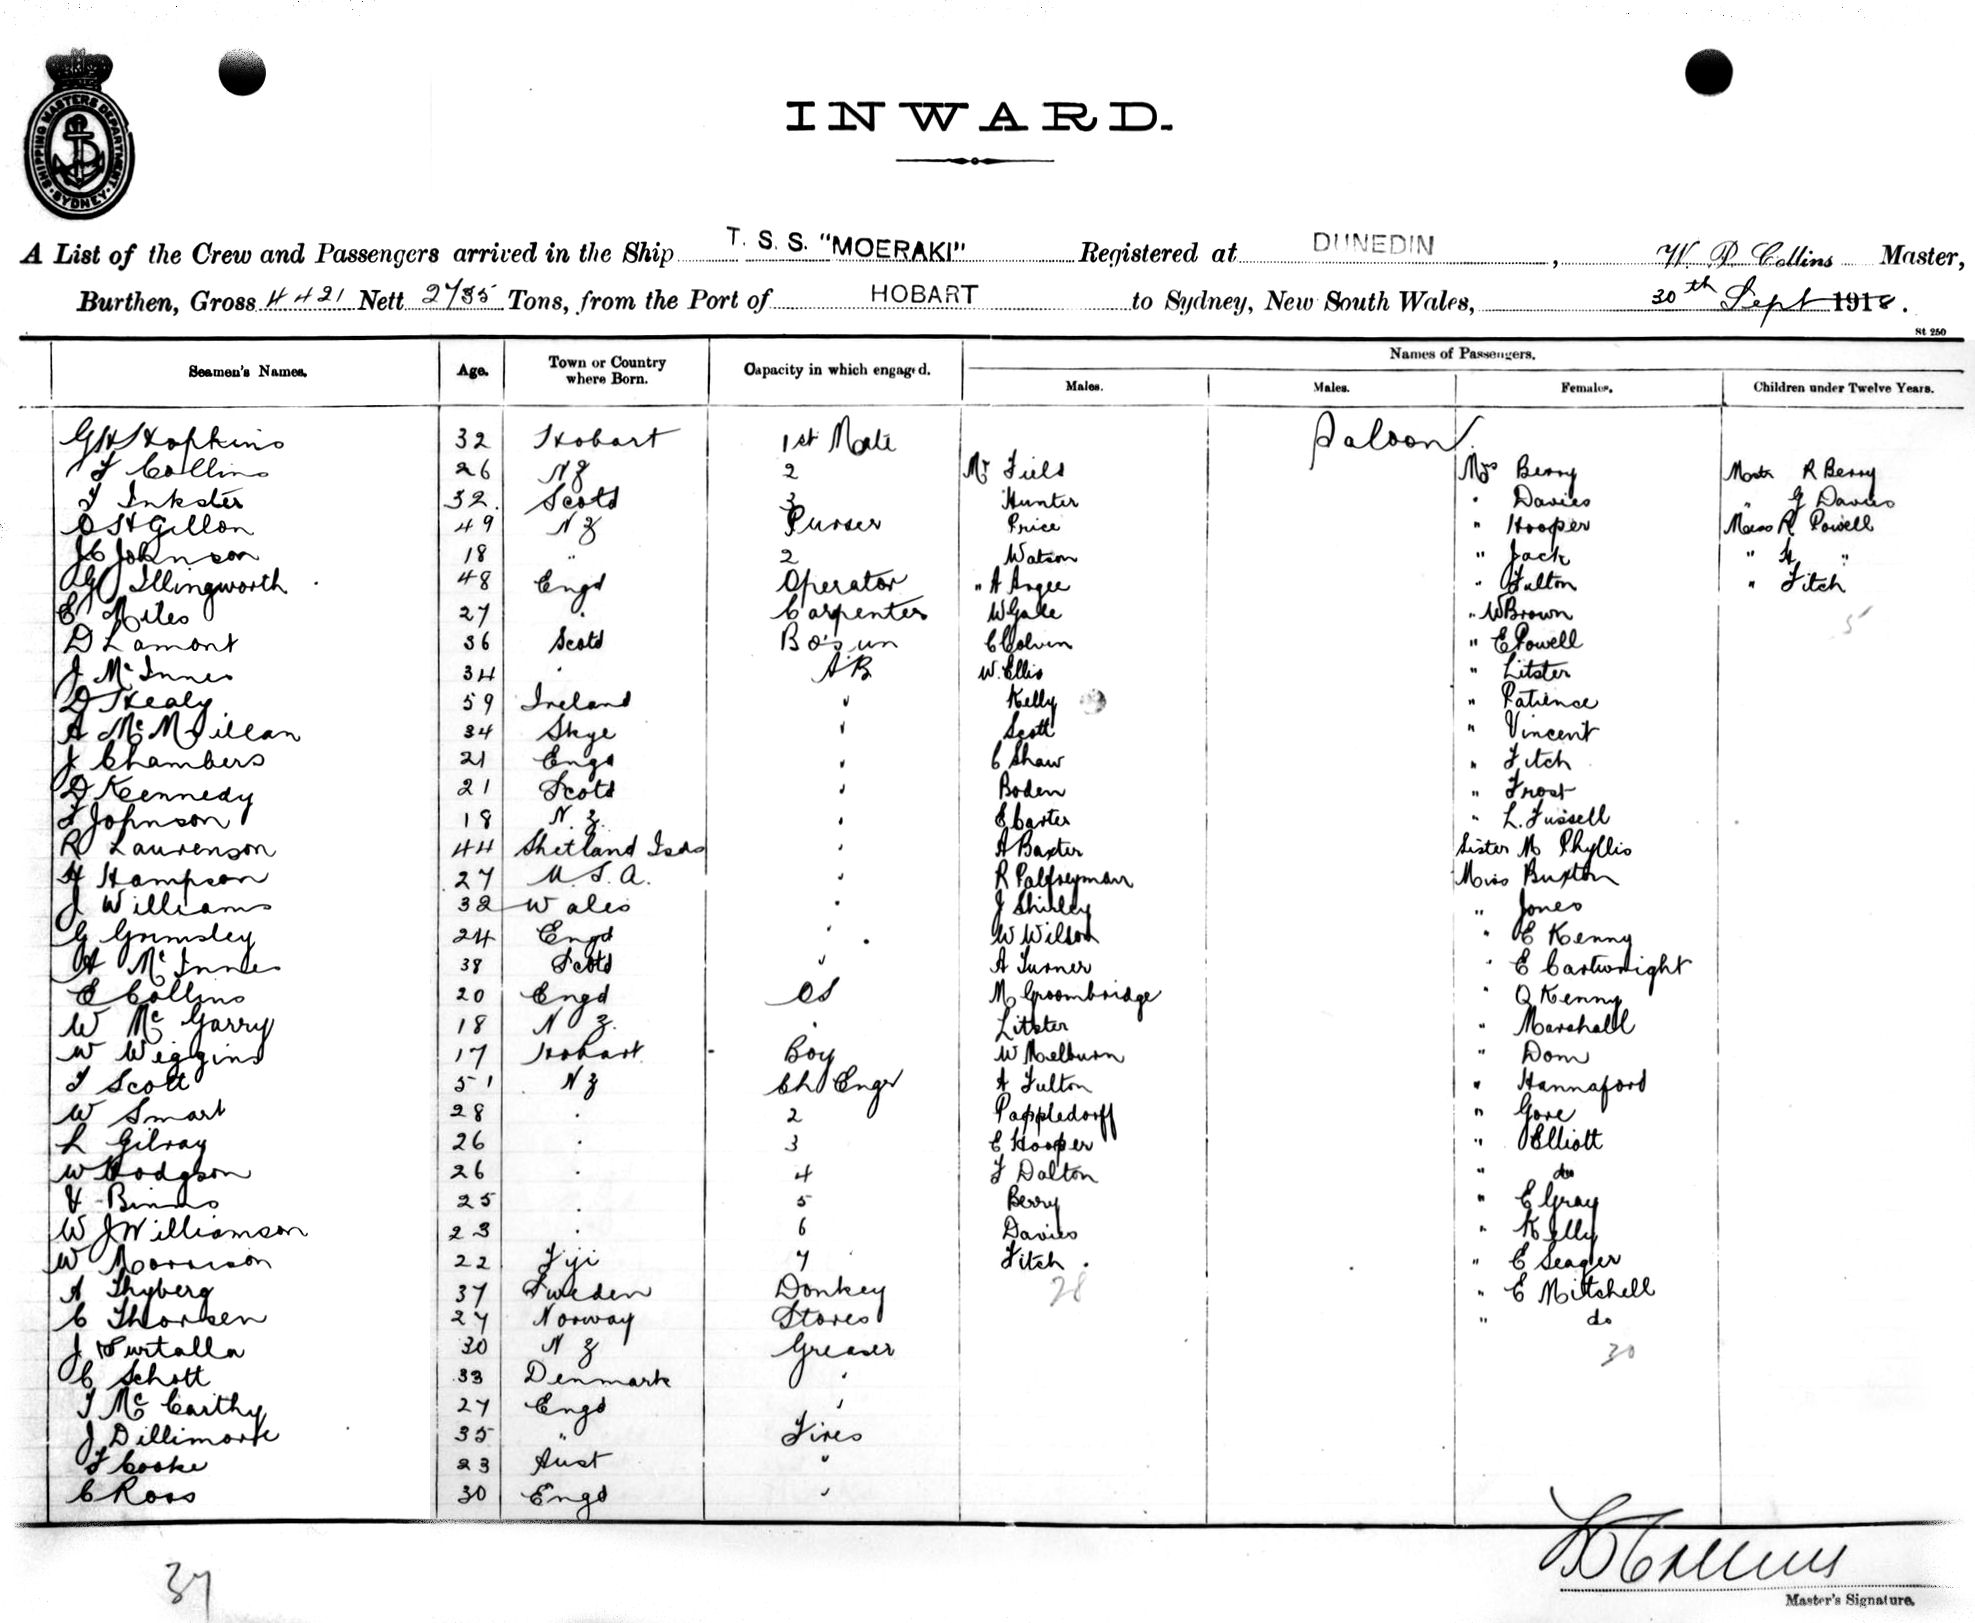 SHIPPING MASTERS DEPARTMENT · SYDNEY ·
INWARD.
A List of the Crew and Passengers arrived in the Ship T. S. S. "MOERAKI" Registered at DUNEDIN, W. D. Collins Master,
Burthen, Gross 4421 Nett 2735 Tons, from the Port of HOBART to Sydney, New South Wales, 30th Sept 1918.
St 250
Seamen's Names. Age. Town or Country where Born. Capacity in which engaged. Names of Passengers.
Males. Males. Females. Children under Twelve Years.
G H Hopkins 32 Hobart 1st Mate Saloon
F Collins 26 NZ 2 Mr Field Mrs Berry Mastr R Berry
T Inkster 32 Scotd 3 Hunter " Davies " G Davies
O H Gillon 49 NZ Purser Price " Hooper Miss R Powell
J C Johnson 18 " 2 Watson " Jack " H "
G Illingworth 48 Engd Operator " A Angee " Fulton " Fitch
E Miles 27 " Carpenter W Gale " W Brown 5
D Lamont 36 Scotd Bo'sun C Colvin " E Powell
J McInnes 34 " AB W. Ellis " Litster
D Healy 59 Ireland " Kelly " Patience
A McMillan 34 Skye " Scott " Vincent
J Chambers 21 Engd " C Shaw " Fitch
D Kennedy 21 Scotd " Boden " Frost
F Johnson 18 N.Z. " E Carter " L. Fussell
R Laurenson 44 Shetland Isds " A Baxter Sister M Phyllis
H Hampson 27 U.S.A. " R Palfreyman Miss Buxton
J Williams 32 Wales " J Shirley " Jones
G Grimsley 24 Engd " W Wilson " E Kenny
A McInnes 38 Scotd " A Turner " E Cartwright
E Collins 20 Engd OS M Groombridge " O Kenny
W McGarry 18 N Z. " Litster " Marshall
W Wiggins 17 Hobart Boy W Melburn " Dom
T Scott 51 NZ Ch Engr A Fulton " Hannaford
W Smart 28 " 2 Pappledorff " Gore
L Gilray 26 " 3 E Hooper " Elliott
W Hodgson 26 " 4 F Dalton " do
Binns 25 " 5 Berry " E Gray
W J Williamson 23 " 6 Davies " Kelly
W Morrison 22 Fiji 7 Fitch " E Seager
A Thyberg 37 Sweden Donkey 28 " E Mitchell
C Thorsen 27 Norway Stores " do
J 30 NZ Greaser 30
C Schott 33 Denmark "
T McCarthy 27 Engd "
J Dillimore 35 " Fires
F Cooke 23 Aust "
C Ross 30 Engd "
37
W D Collins
Master's Signature.